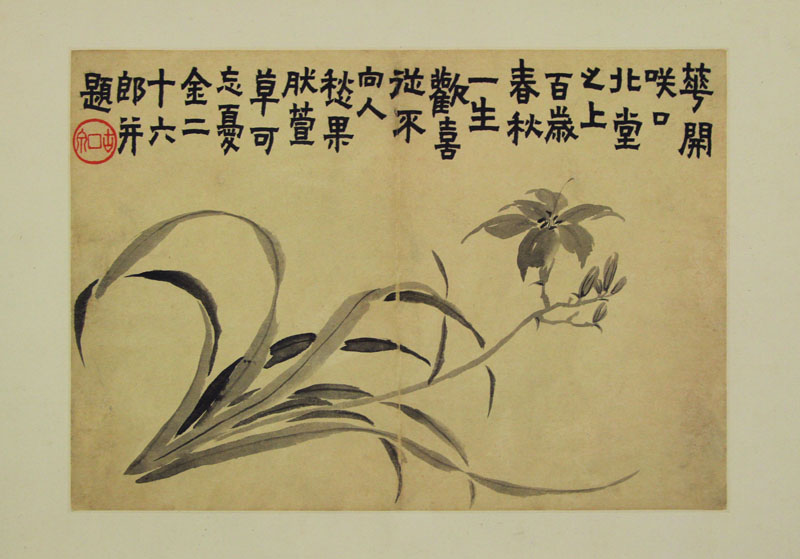 華開
咲口
北堂
之上
百歲
春秋
一生
歡喜
從不
向人
愁果
肰萱
草可
忘憂
金二
十六
郎并
題